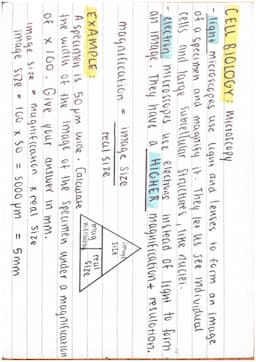 CELL BIOLOGY: Microscopy
- light microscopes use light and lenses to form an image
of a specimen and magnify it. They let us see individual
cells and large subcellular structures, like nuclei.
- electron microscopes use electrons instead of light to form
an image. They have a HIGHER magnification + resolution.
magnification = image size
real size
image
size
real
size
EXAMPLE:
A specimen is 50 μm wide. Calculate
the width of the image of the specimen under a magnification
of x 100. Give your answer in mm.
image size = magnification x real size
image size = 100 x 50 = 5000 μm = 5mm